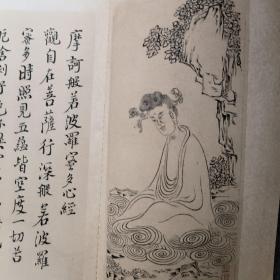 摩訶般若波羅蜜多心經
觀自在菩薩行深般若波羅
蜜多時照見五蘊皆空度一切苦
厄舍利子色不異空